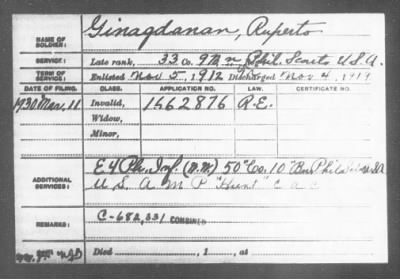 NAME OF SOLDIER: Ginagdanan, Ruperto
SERVICE: Late rank, 33 Co. 9th Phil. Scouts U.S.A.
TERM OF SERVICE: Enlisted Nov 5, 1912 Discharged Nov 4, 1919
DATE OF FILING. CLASS. APPLICATION NO. LAW. CERTIFICATE NO.
1930 Mar. 11 Invalid, 1662876 R.E.
Widow,
Minor,
ADDITIONAL SERVICES: E 4 Ph. Inf. (N.M.) 50" Co. 10 Bn Phila
U S A M P "Hunt" C a C
REMARKS: C-682,331 COMBINED
Died , 1 , at